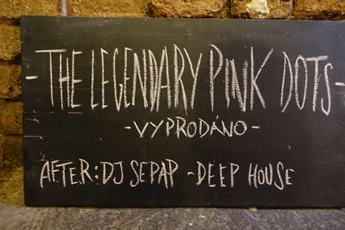 - THE LEGENDARY PINK DOTS -
- VYPRODÁNO -
AFTER: DJ SEPAP - DEEP HOUSE